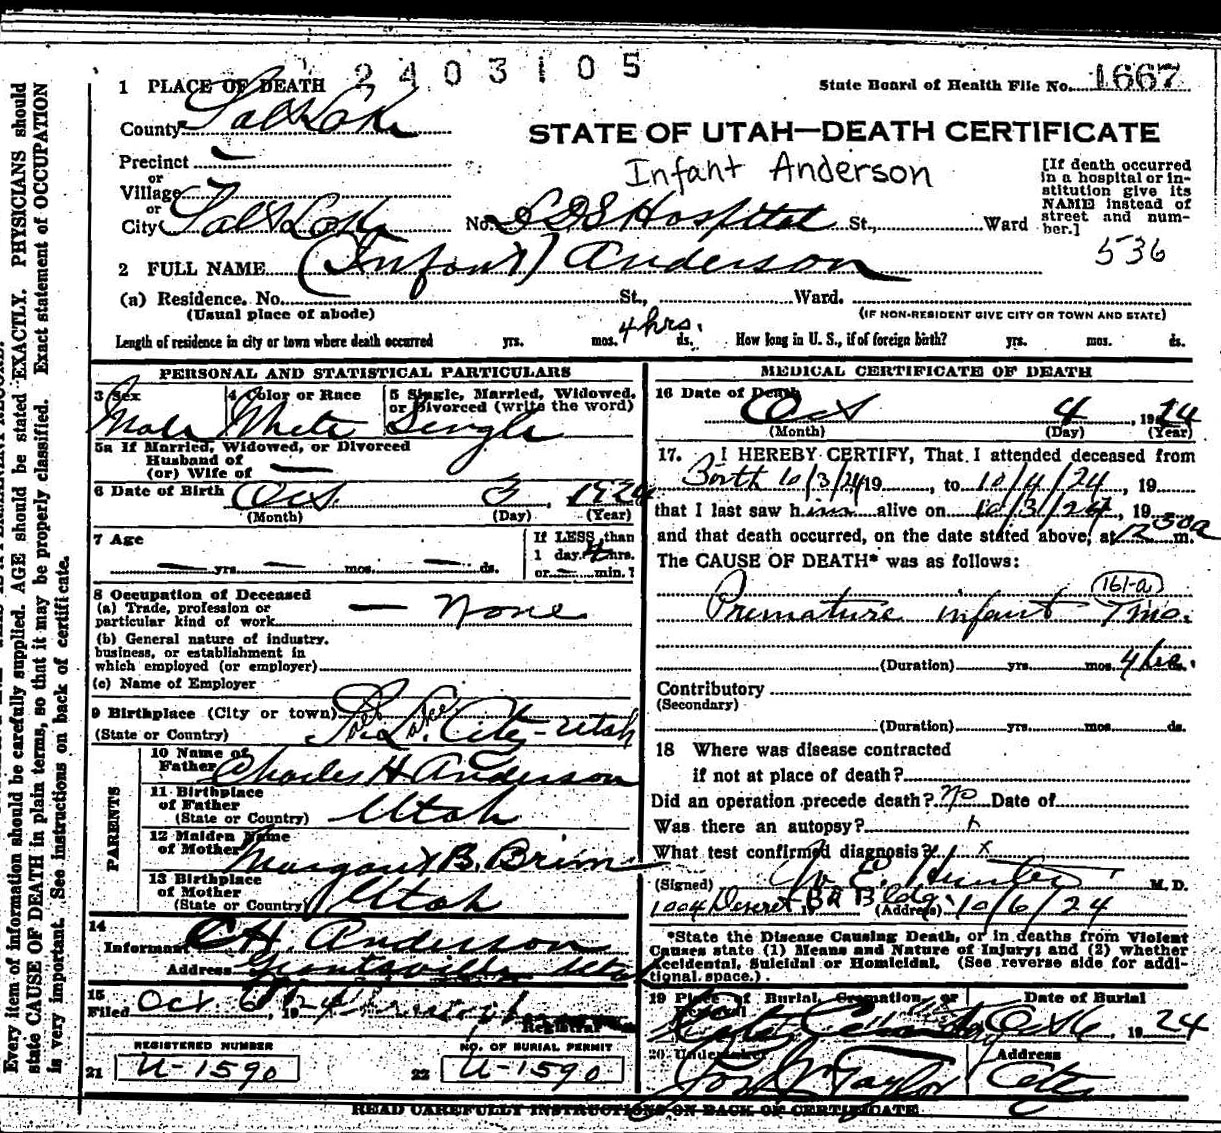 2403105
State Board of Health File No. 1667
1 PLACE OF DEATH
County Salt Lake
STATE OF UTAH—DEATH CERTIFICATE
Precinct —
or
Village
or
City Salt Lake No. LDS Hospital St., Ward
Infant Anderson
[If death occurred
in a hospital or in-
stitution give its
NAME instead of
street and num-
ber.]
536
2 FULL NAME (Infant) Anderson
(a) Residence. No. St., Ward.
(Usual place of abode) (IF NON-RESIDENT GIVE CITY OR TOWN AND STATE)
Length of residence in city or town where death occurred yrs. mos. 4 hrs. ds. How long in U. S., if of foreign birth? yrs. mos. ds.
PERSONAL AND STATISTICAL PARTICULARS
3 Sex 4 Color or Race 5 Single, Married, Widowed,
or Divorced (write the word)
Male White Single
5a If Married, Widowed, or Divorced
Husband of
(or) Wife of —
6 Date of Birth Oct 3, 1924
(Month) (Day) (Year)
7 Age If LESS than
1 day, 4 hrs.
— yrs. — mos. — ds. or — min.?
8 Occupation of Deceased
(a) Trade, profession or
particular kind of work — None
(b) General nature of industry,
business, or establishment in
which employed (or employer)
(c) Name of Employer
9 Birthplace (City or town) Salt Lake City - Utah
(State or Country)
PARENTS
10 Name of
Father Charles H Anderson
11 Birthplace
of Father
(State or Country) Utah
12 Maiden Name
of Mother Margaret B. Brim
13 Birthplace
of Mother
(State or Country) Utah
14
Informant C H. Anderson
Address Grantsville Utah
15
Filed Oct 6, 1924
Registrar
REGISTERED NUMBER NO. OF BURIAL PERMIT
21 U-1590 22 U-1590
MEDICAL CERTIFICATE OF DEATH
16 Date of Death
Oct 4, 1924
(Month) (Day) (Year)
17. I HEREBY CERTIFY, That I attended deceased from
Birth 10/3/24 19, to 10/4/24, 19
that I last saw him alive on 10/3/24, 19
and that death occurred, on the date stated above, at 12 50 a m.
The CAUSE OF DEATH* was as follows:
161-a
Premature infant 7 mo.
(Duration) yrs. mos. 4 hrs.
Contributory
(Secondary)
(Duration) yrs. mos. ds.
18 Where was disease contracted
if not at place of death?
Did an operation precede death? no Date of
Was there an autopsy? x
What test confirmed diagnosis? x
(Signed) E. Hunter M. D.
1004 Deseret Bk Bldg. (Address) 10/6/24
*State the Disease Causing Death, or in deaths from Violent
Causes state (1) Means and Nature of Injury; and (2) whether
Accidental, Suicidal or Homicidal. (See reverse side for addi-
tional space.)
19 Place of Burial, Cremation, or Date of Burial
Removal
City Cemetery Oct 6, 1924
20 Undertaker Address
Jos Wm Taylor City
READ CAREFULLY INSTRUCTIONS ON BACK OF CERTIFICATE
Every item of information should be carefully supplied. AGE should be stated EXACTLY. PHYSICIANS should
state CAUSE OF DEATH in plain terms, so that it may be properly classified. Exact statement of OCCUPATION
is very important. See instructions on back of certificate.